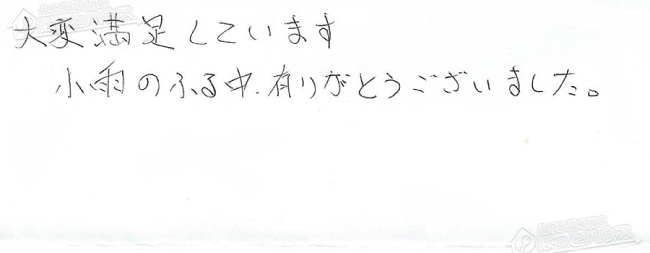 大変満足しています
小雨のふる中、有りがとうございました。